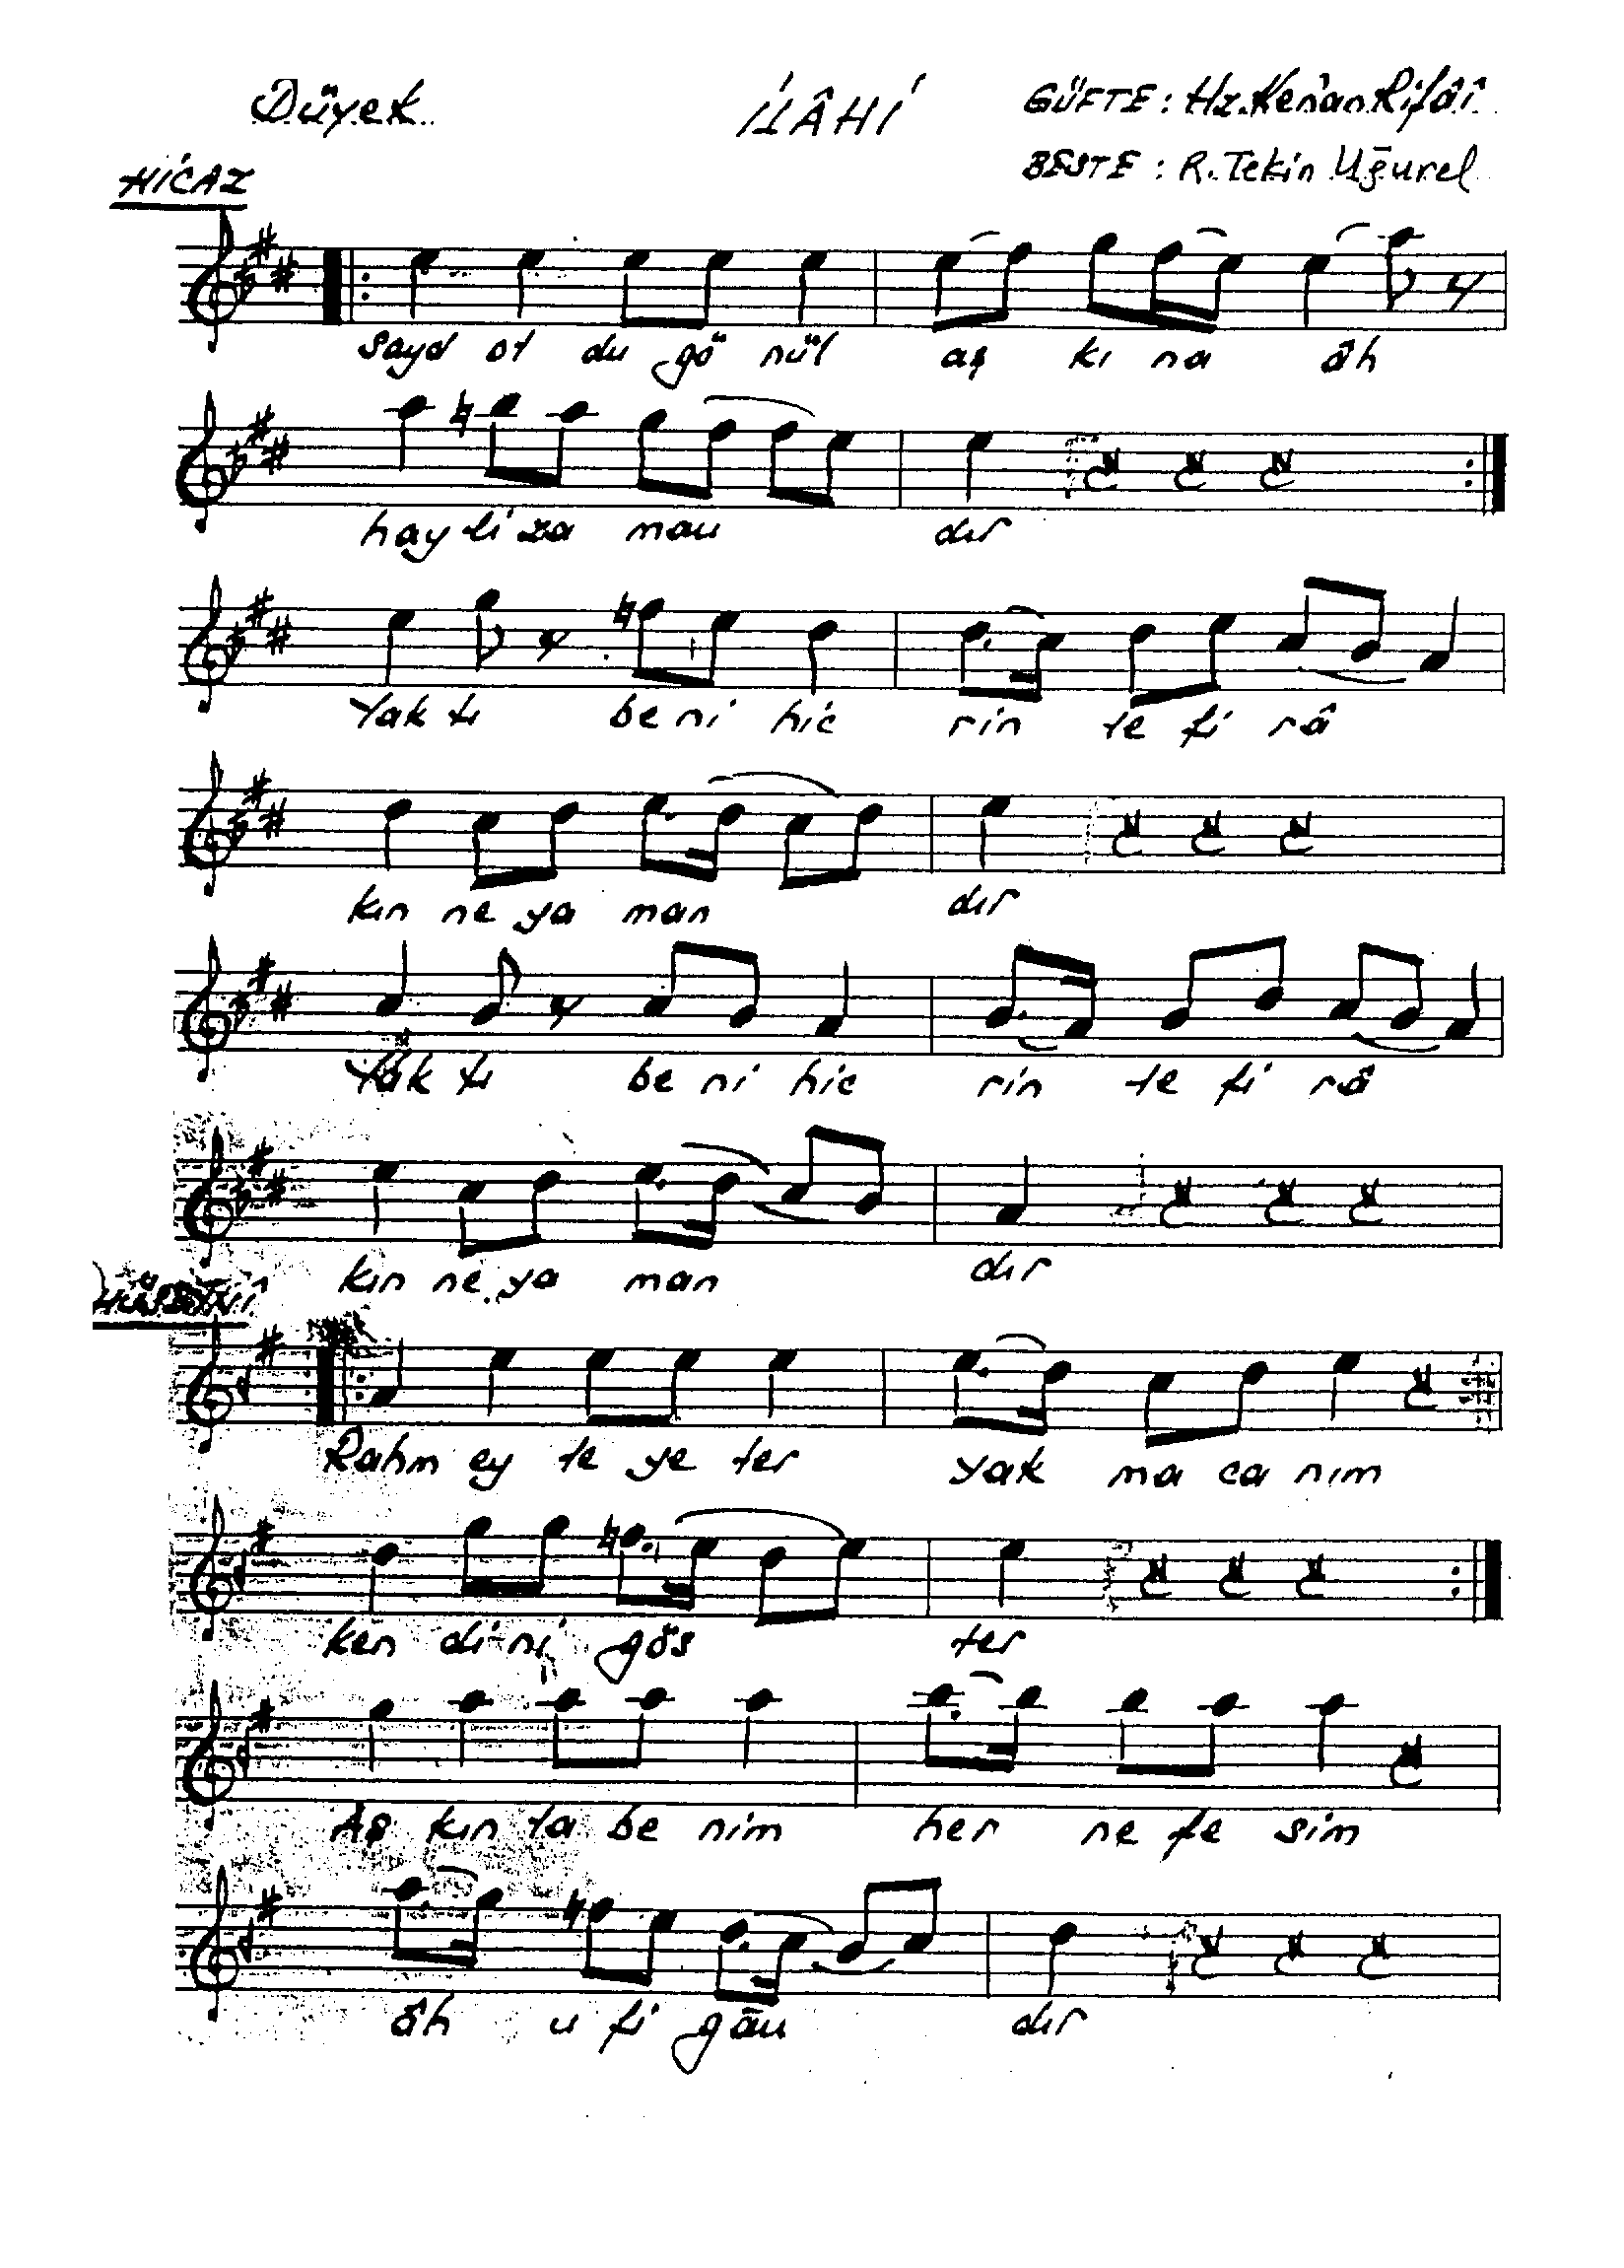 Düyek
İLÂHİ
GÜFTE : Hz. Ken'an Rifâî
BESTE : R. Tekin Uğurel
HİCAZ
Sayd ol du gö nül aş kı na âh
hay li za man dır
Yak tı be ni hic rin le fi râ
kın ne ya man dır
Yak tı be ni hic rin le fi râ
kın ne ya man dır
HÜSEYNÎ
Rahm ey le ye ter yak ma ca nım
ken di ni gös ter
Aş kın la be nim her ne fe sim
âh u fi gân dır